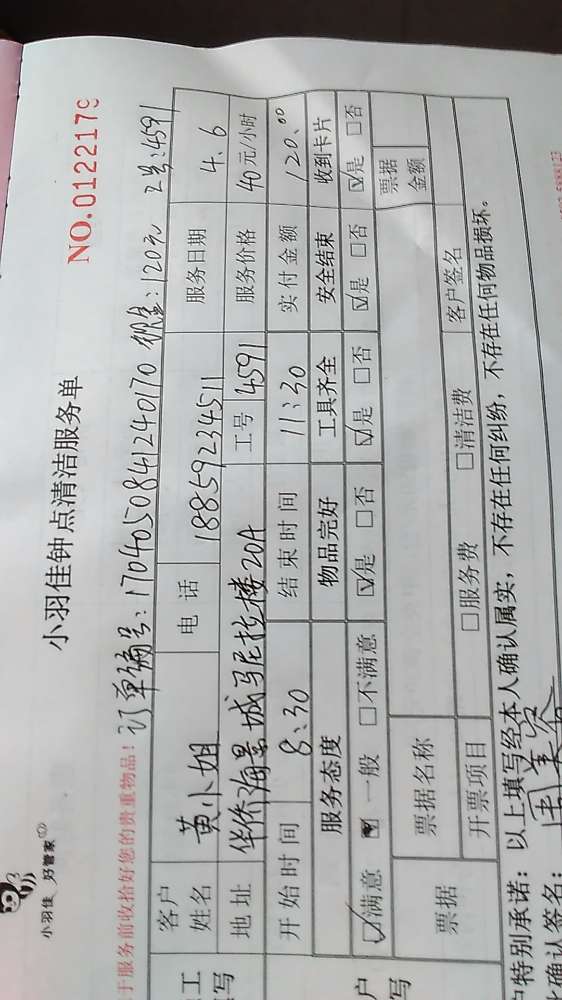 小羽佳 好管家
小羽佳钟点清洁服务单
NO.0122179
于服务前收拾好您的贵重物品!
订单编号:1704050841240170 佣金:120元 工号:4591
客户姓名 黄小姐 电话 18859234511 服务日期 4.6
地址 华侨海景城马尼拉楼20A 工号 4591 服务价格 40元/小时
开始时间 8:30 结束时间 11:30 实付金额 120.00
服务态度 物品完好 工具齐全 安全结束 收到卡片
☑满意 ☑一般 □不满意 ☑是 □否 ☑是 □否 ☑是 □否 ☑是 □否
票据 票据名称 票据金额
开票项目 □服务费 □清洁费 客户签名
户特别承诺:以上填写经本人确认属实,不存在任何纠纷,不存在任何物品损坏。
确认签名: